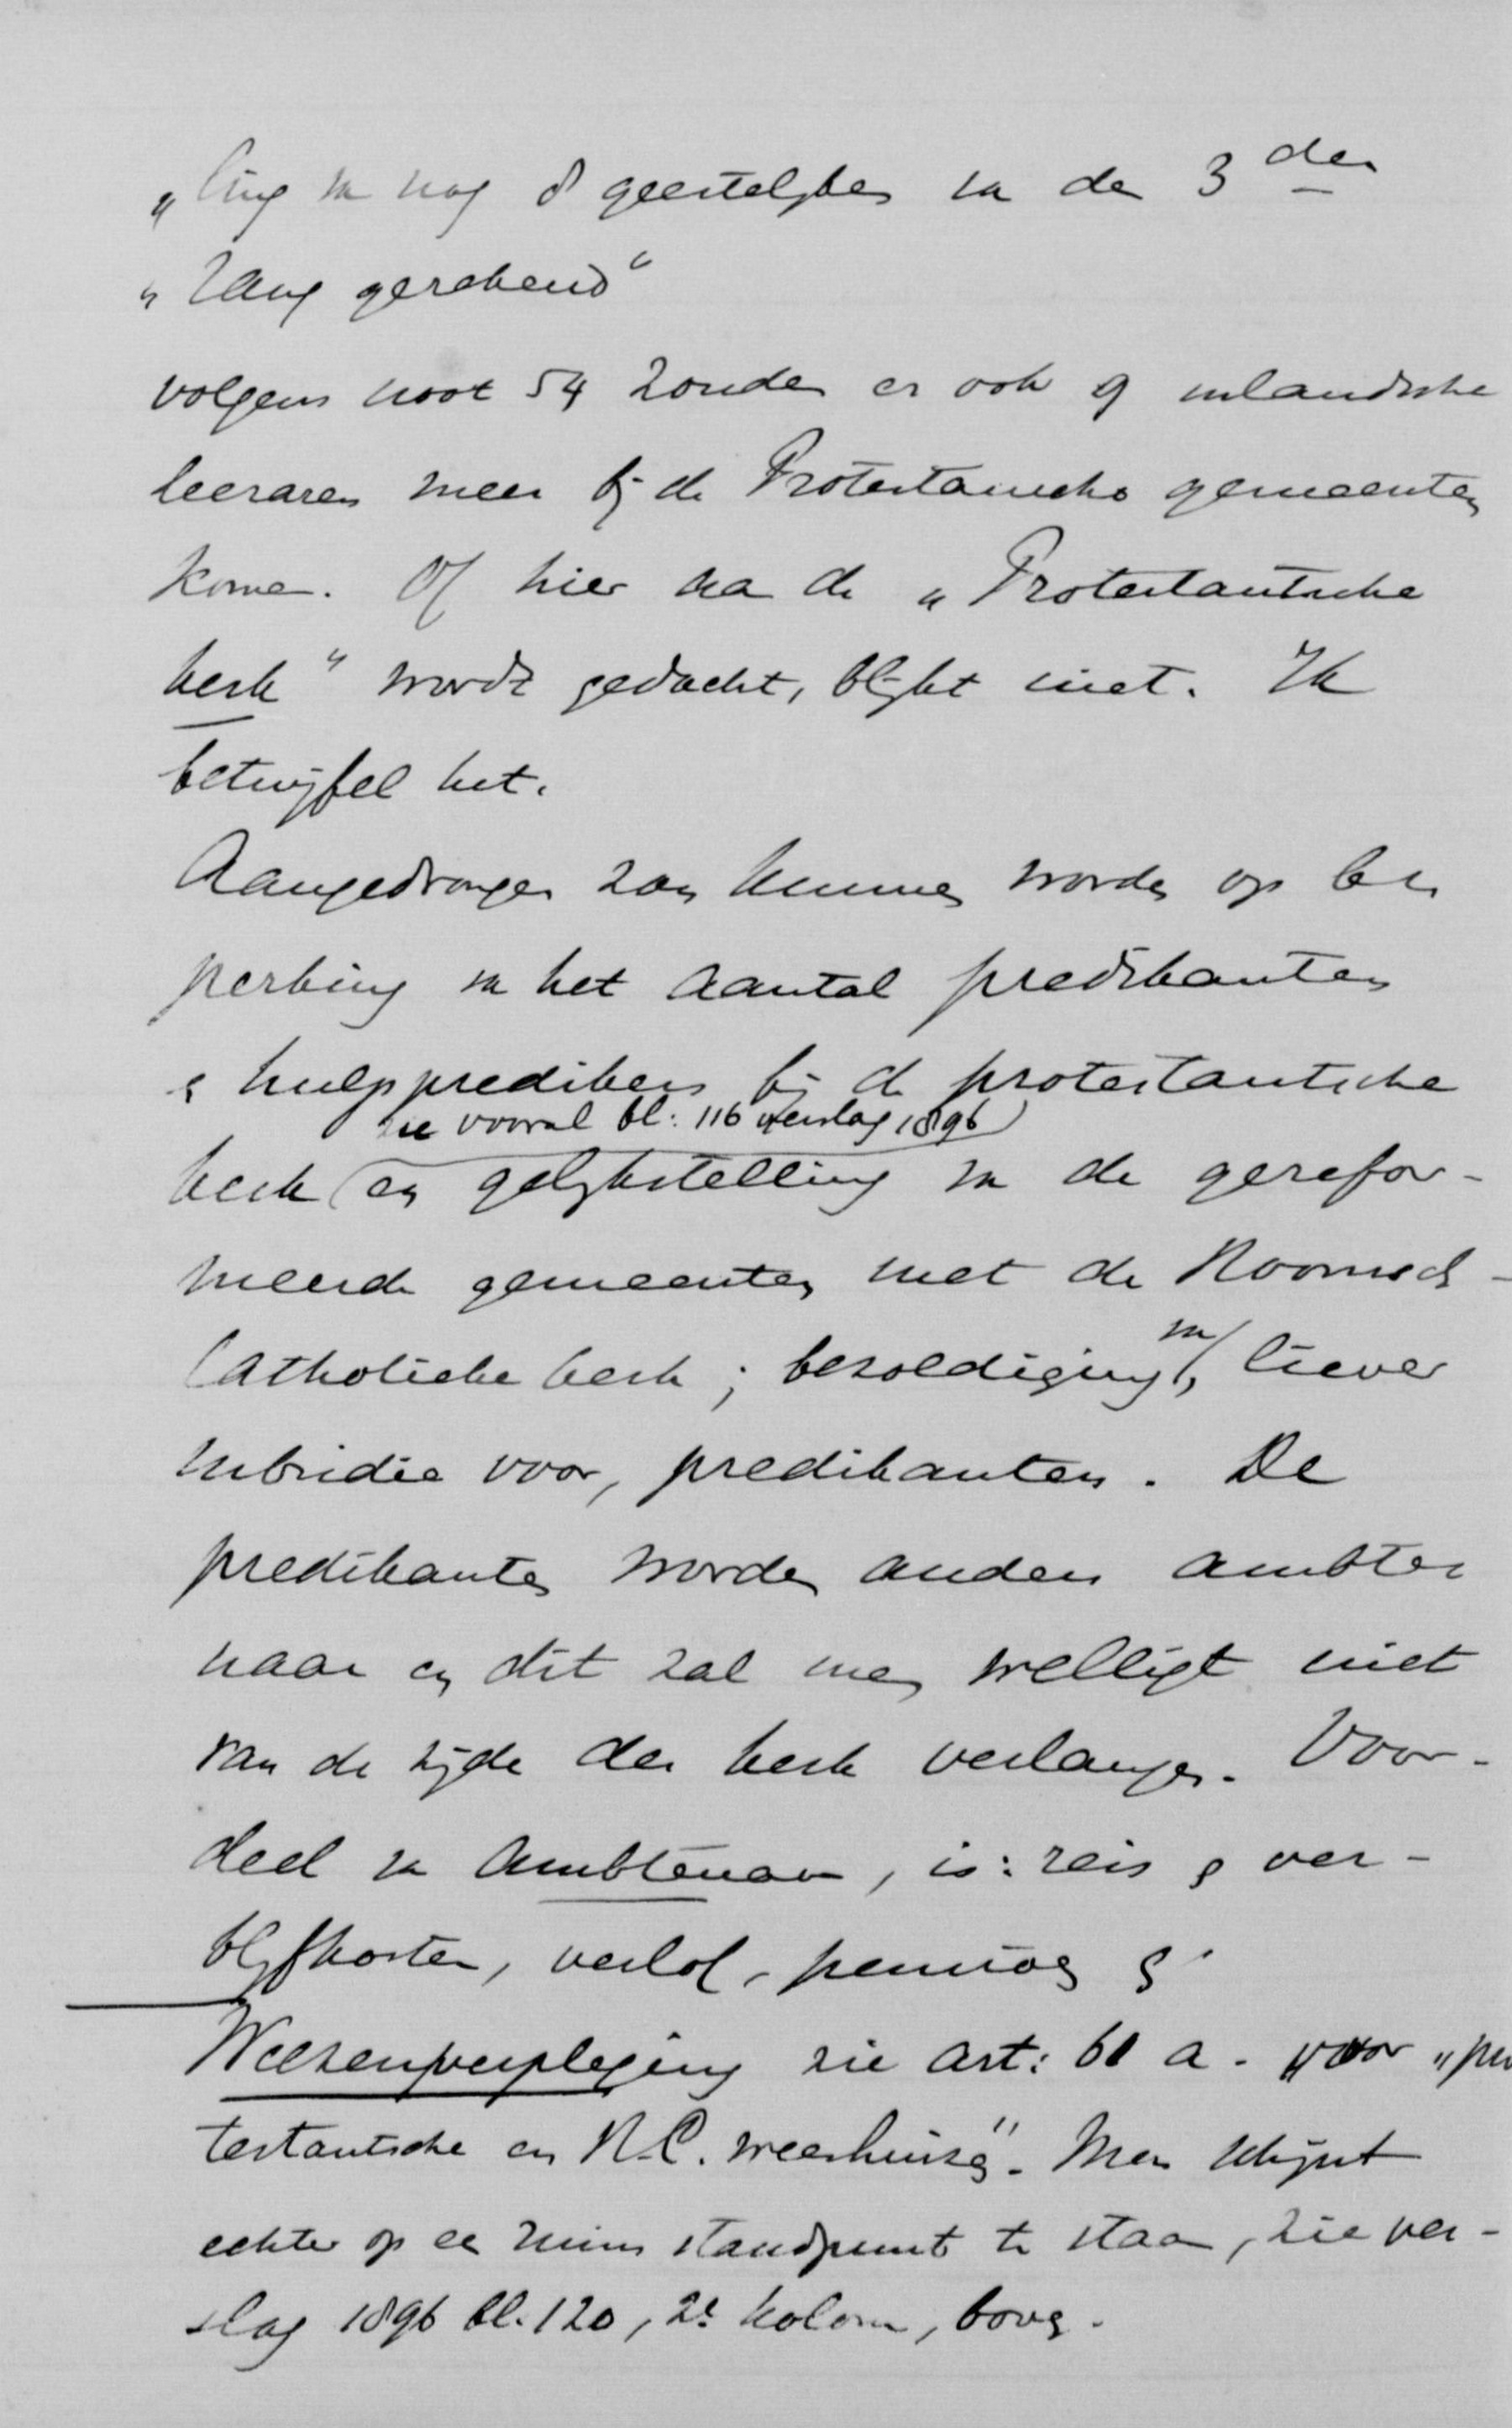 „ling v nog 8 geestelijken v den 3den
„rang gerekend“
volgens noot 54 zouden er ook 9 inlandsche
leeraren meer bij de Protestantsche gemeenten
komen. Of hier aan de „Protestantsche
kerk“ wordt gedacht, blijkt niet. Ik
betwijfel het.
Aangedrongen zou kunnen worden op be
perking v het aantal predikanten
& hulppredikers bij de protestantsche
zie vooral bl: 116 verslag 1896)
kerk (en gelijkstelling v de gerefor-
meerde gemeenten met de Roomsch-
Catholieke kerk; bezoldiging v, liever
subsidie voor, predikanten. De
predikanten worden anders ambte
naar en dit zal men welligt niet
van de zijde der kerk verlangen. Voor-
deel v ambtenaar, is: reis & ver-
blijfkosten, verlof, pensioen &.
Weezenverpleging zie art: 61 a. voor „pro
testantsche en R.C. weeshuizen“. Men schijnt
echter op een ruim standpunt te staan, zie ver-
slag 1896 bl. 120, 2e kolom, boven.